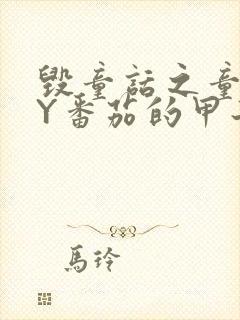 毁童话之童
Y番茄的甲
馬玲